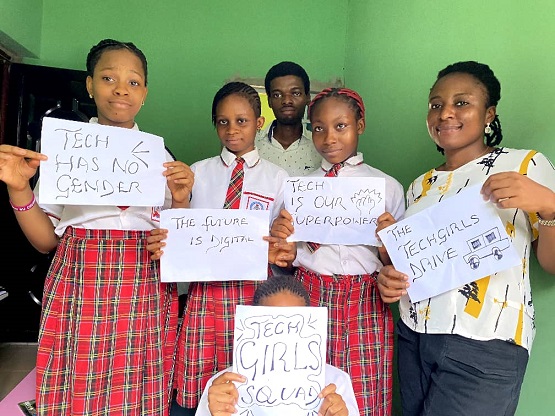 TECH
HAS NO
GENDER
THE FUTURE
IS DIGITAL
TECH
IS OUR
SUPERPOWER
THE
TECHGIRLS
DRIVE
TECH
GIRLS
SQUAD